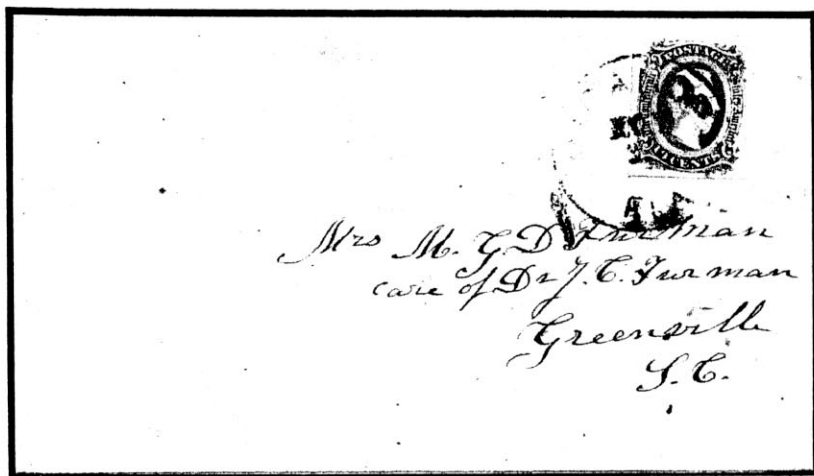 POSTAGE
Mrs M. G. D Furman
care of Dr J. C. Furman
Greenville
S. C.